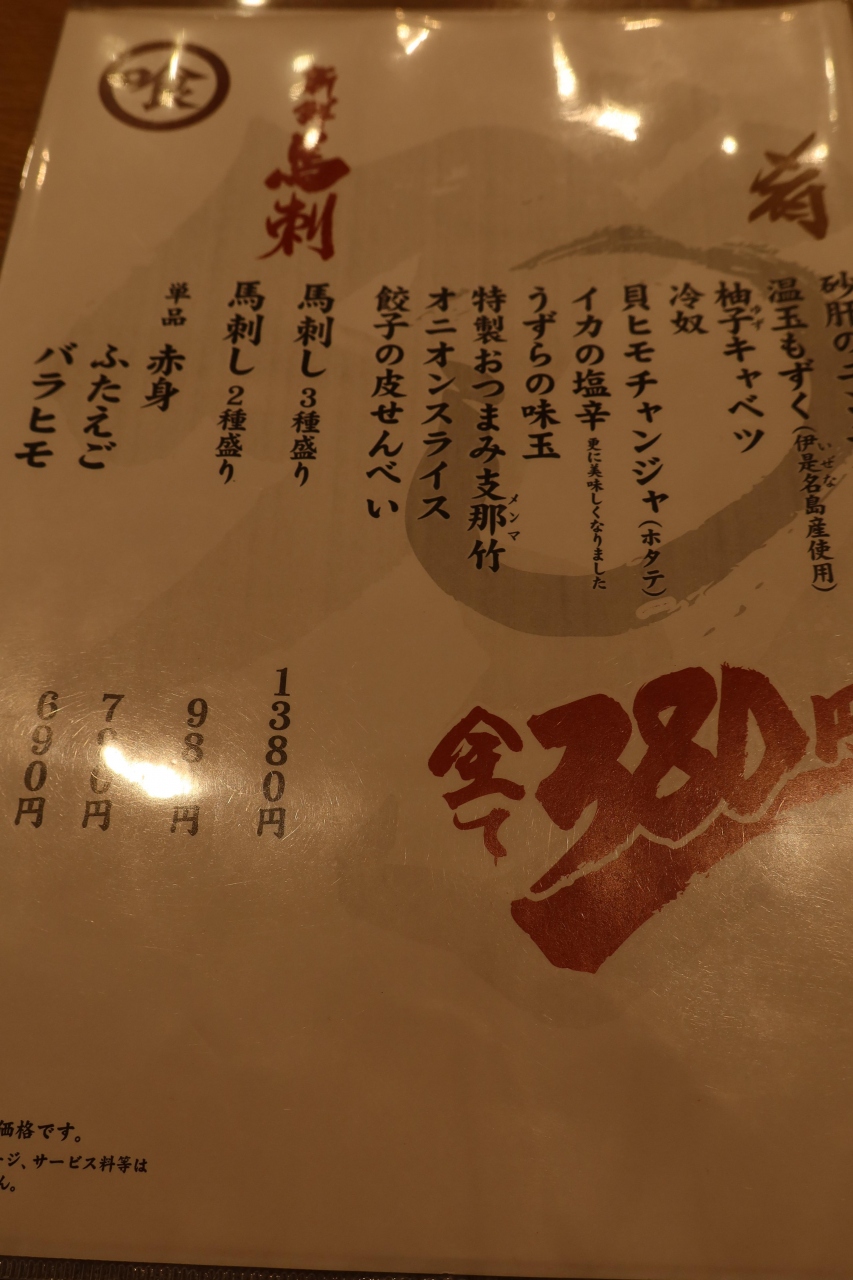 肴
砂肝の
温玉もずく(伊是名島産使用)
いぜな
柚子キャベツ
ゆず
冷奴
貝ヒモチャンジャ(ホタテ)
イカの塩辛 更に美味しくなりました
うずらの味玉
特製おつまみ支那竹
メンマ
オニオンスライス
餃子の皮せんべい
全て380円
新鮮
馬刺
馬刺し 3種盛り 1380円
馬刺し 2種盛り 98 円
単品 赤身
ふたえご
バラヒモ 690円
喰
価格です。
ージ、サービス料等は
ん。